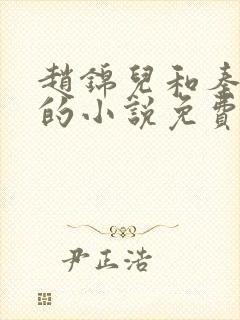 趙錦兒和秦
的小說免費
尹正浩